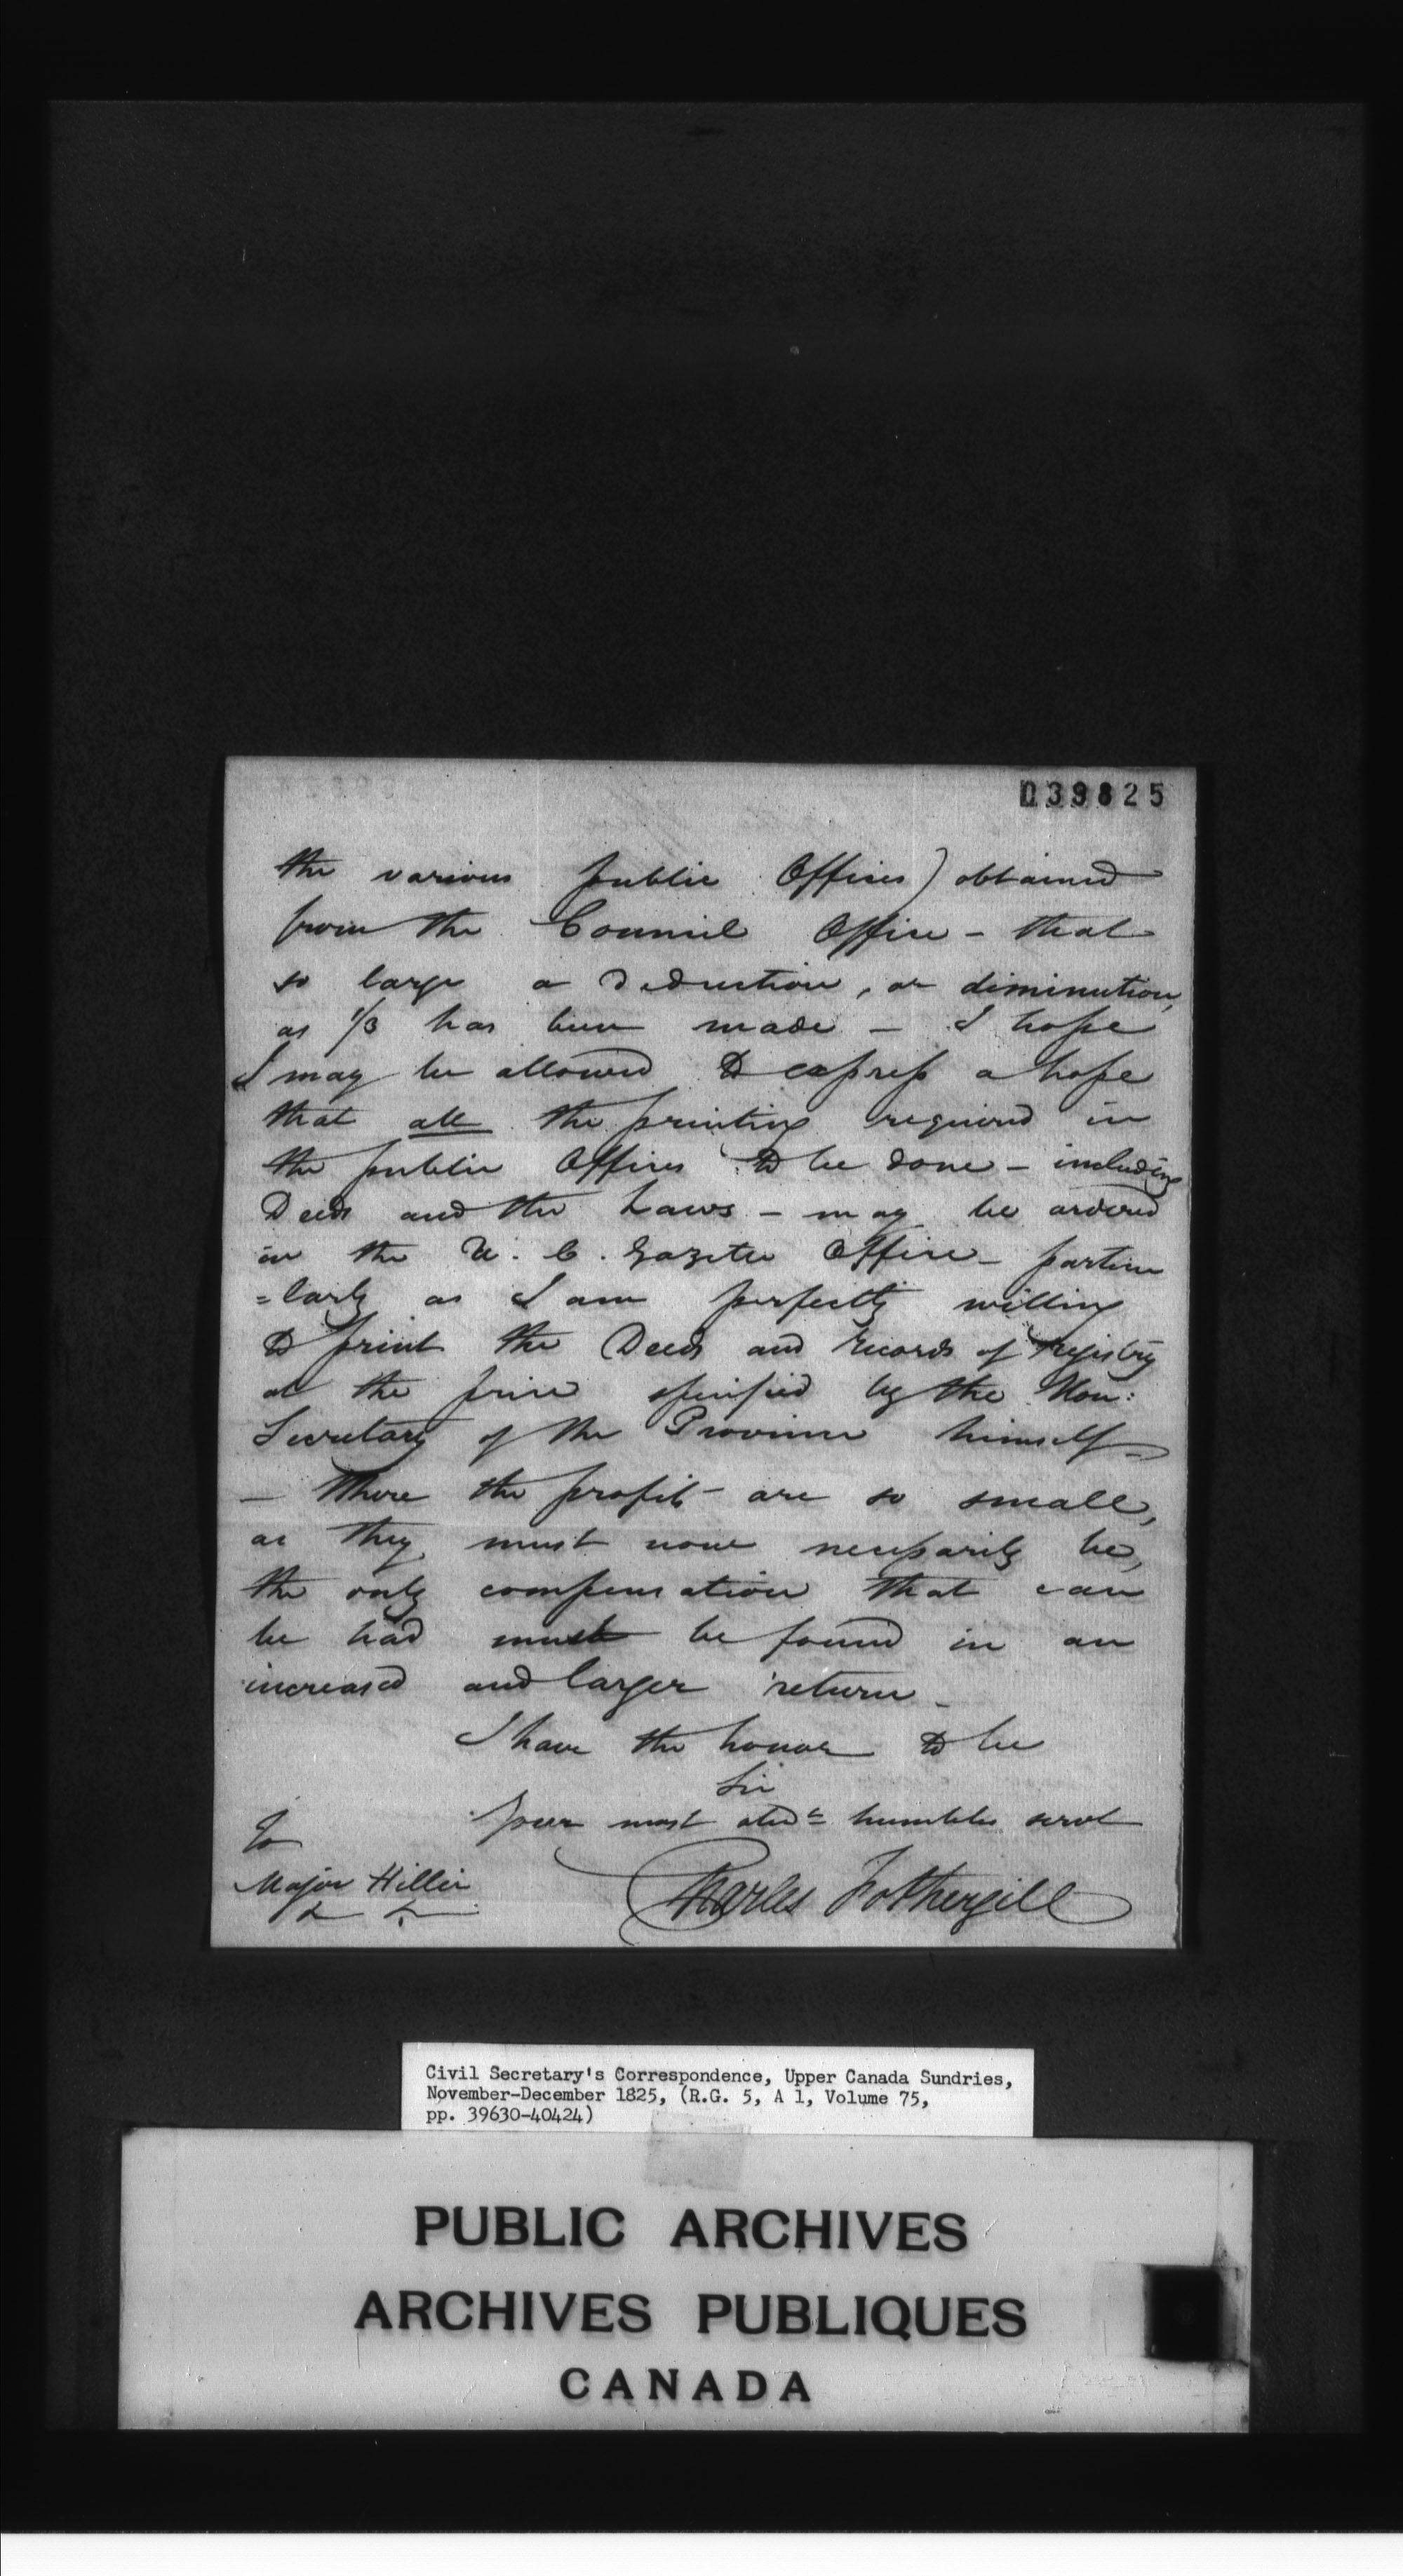 039825
the various public Offices) obtained
from the Council Office - that
so large a Deduction, or diminution,
as 1/3 has been made - I hope
I may be allowed to express a hope
that all the printing required in
the public Offices to be done - including
Deeds and the Laws - may be ordered
in the U. C. Gazette Office - particu
=larly as I am perfectly willing
to print the Deeds and records of Registry
at the price specified by the Hon:
Secretary of the Province himself -
- Where the profits are so small,
as they must now necessarily be,
the only compensation that can
be had must be found in an
increased and larger return -
I have the honor to be
Sir
Your most obedt humble servt
Charles Fothergill
To
Major Hillier
Civil Secretary's Correspondence, Upper Canada Sundries,
November-December 1825, (R.G. 5, A 1, Volume 75,
pp. 39630-40424)
PUBLIC ARCHIVES
ARCHIVES PUBLIQUES
CANADA